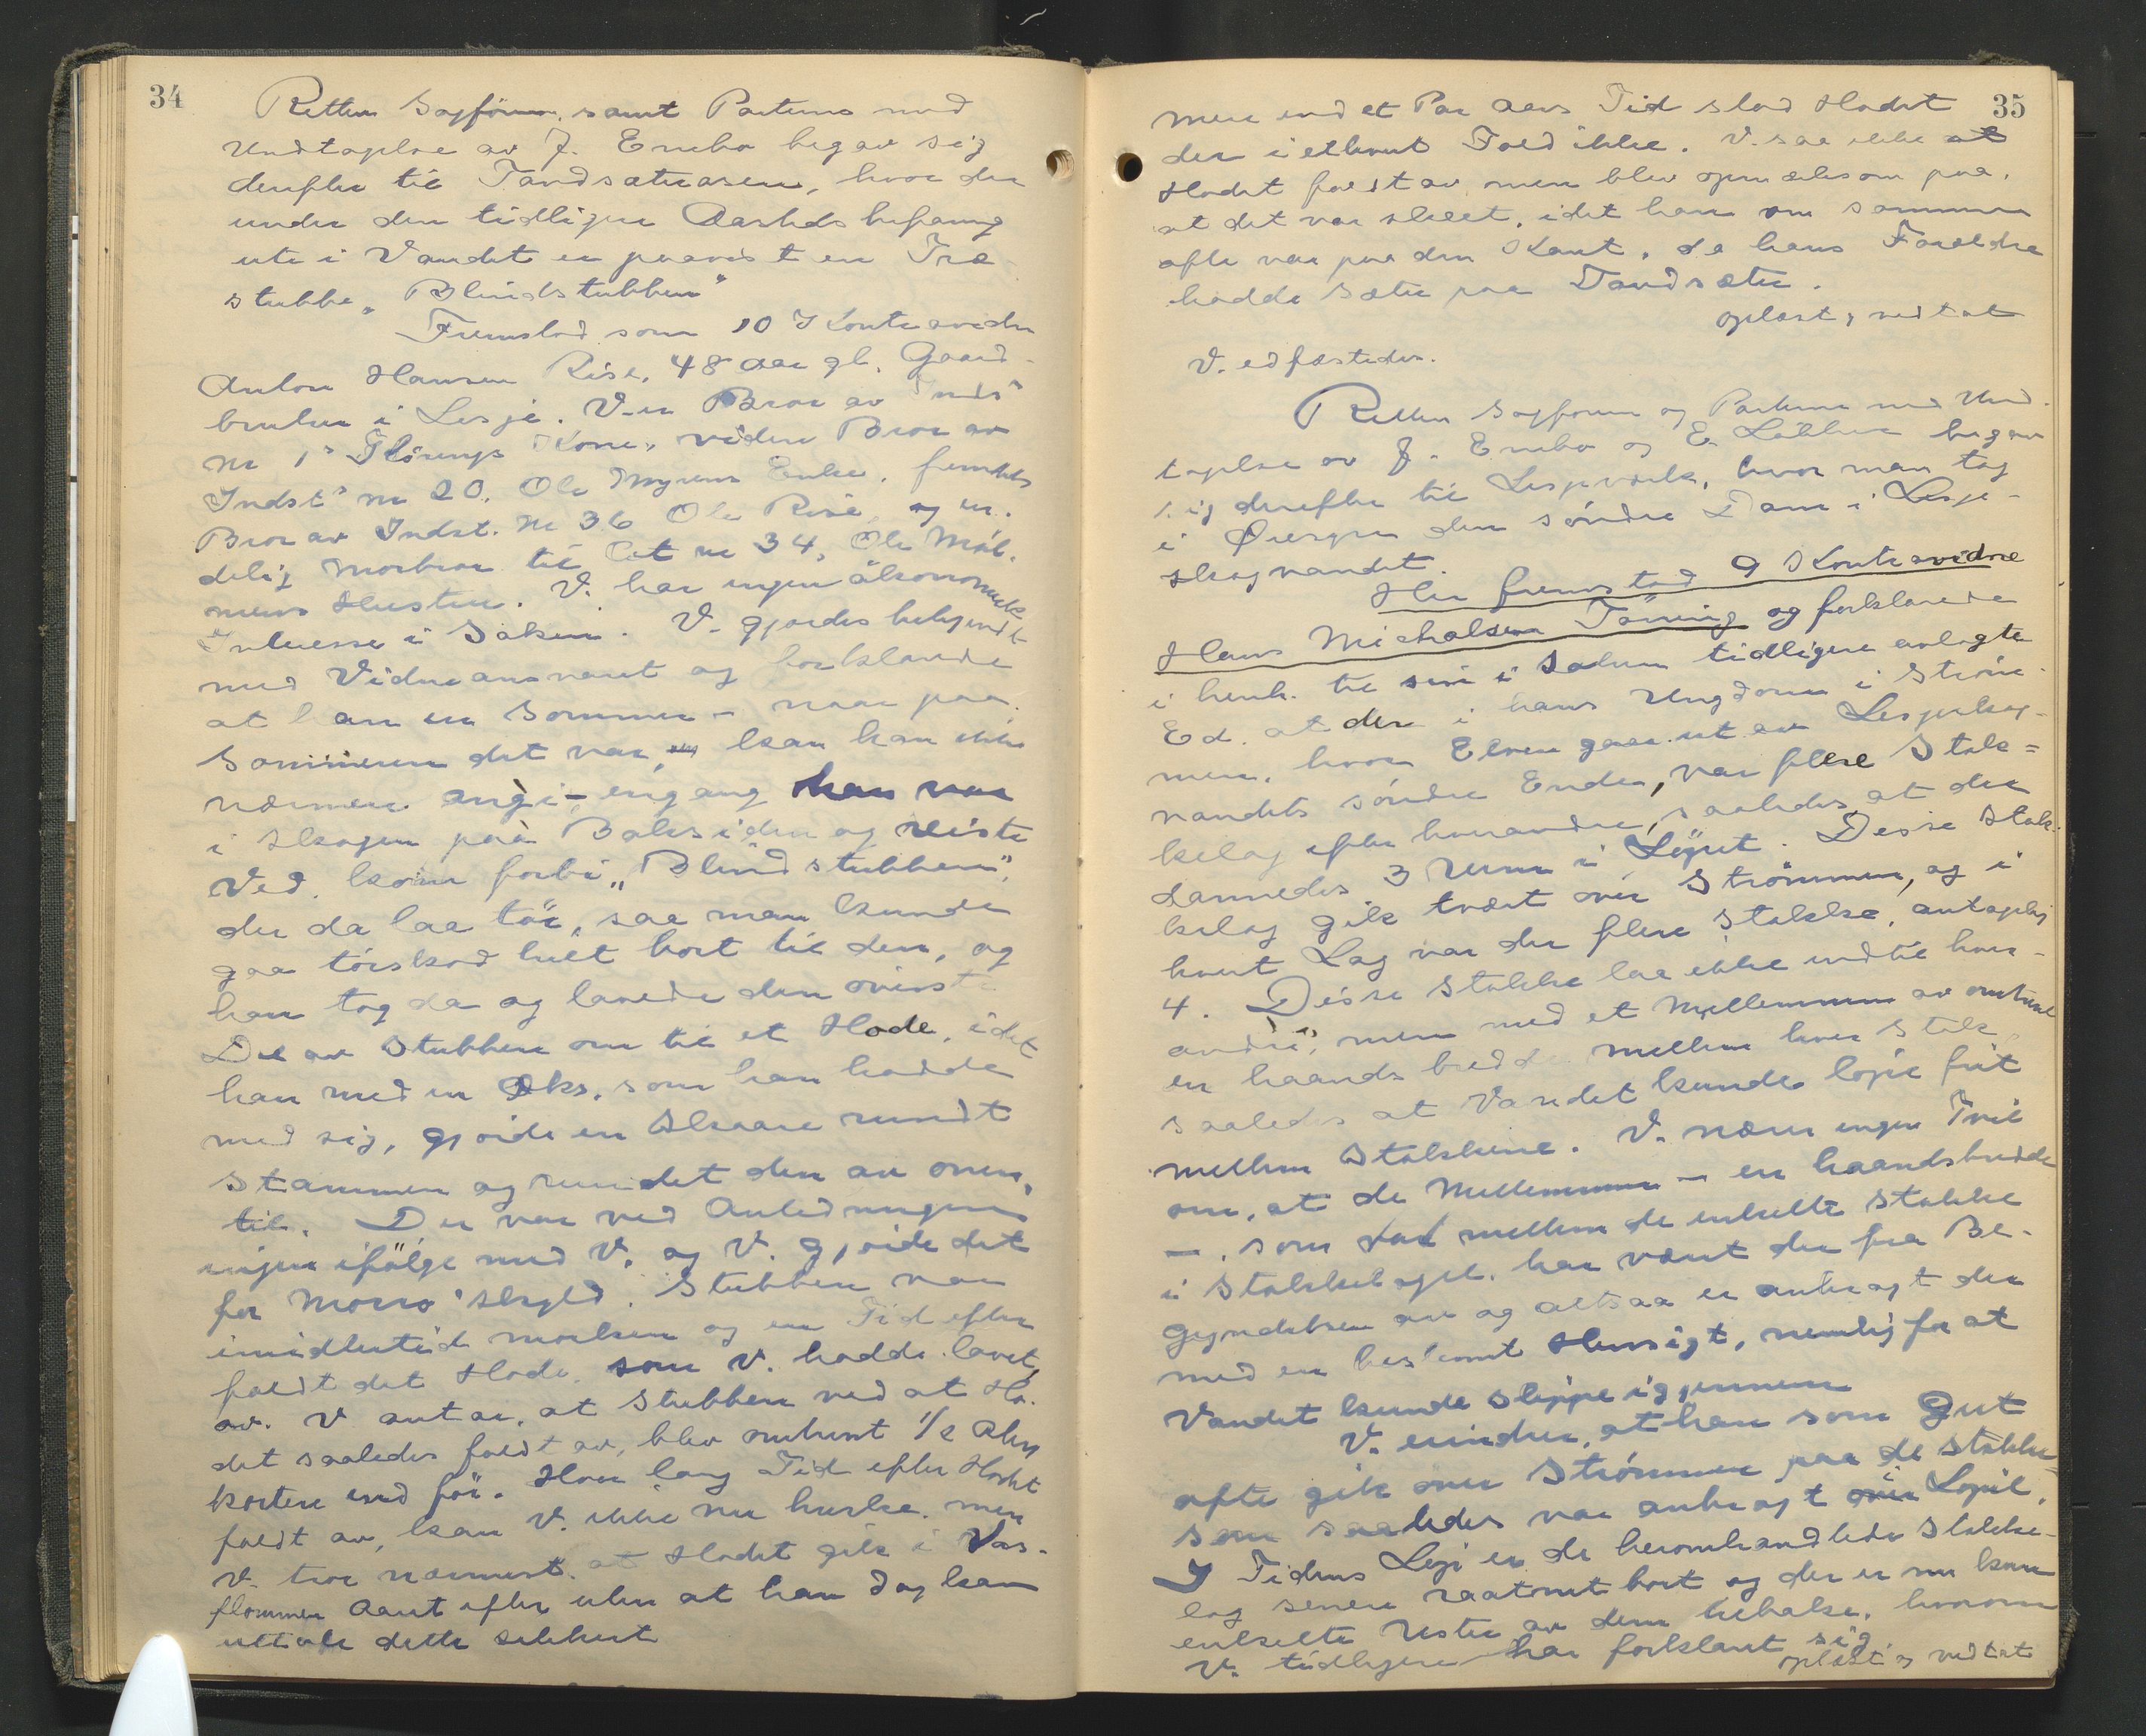 34
Retten Sagförere samt Parterne med
Undtagelse av J. Enebo begav sig
derefter til Tandsæterasen, hvor der
under den tidligere Aastedsbefaring
ute i Vandet er paavist en Træ
stubbe, "Blindstubben"
Fremstod som 10 Kontravidne
Anton Hansen Rise, 48 aar gl. Gaard-
bruker i Lesje. V. er Bror av Inds
nr 1 Flörenge Kone, videre Bror av
Indst nr 20. Ole Myrens Enke, fremdeles
Bror av Indst. Nr 36 Ole Rise og en-
delig Morbror til Cit nr 34, Ole Möl-
mens Hustru. V. har ingen ökonomisk
Interesse i Saken. V. gjordes bekjendt
med Vidneansvaret og forklarede
at han en Sommer - naar paa
Sommeren det var, kan han ikke
nærmere angi - engang han var
i Skogen paa Baksiden og reiste
Ved, kom forbi "Blindstubben",
der da laa tör, saa man kunde
gaa törskod helt bort til den, og
han tog da og lavede den överste
Del av Stubben om til et Hode, idet
han med en Öks, som han hadde
med sig, gjorde en Skaare rundt
Stammen og rundet den av oven-
til. Der var ved Anledningen
ingen ifölge med V. og V. gjorde det
for Morro Skyld. Stubben var
imidlertid morken og en Tid efter
faldt det Hode, som V. hadde lavet,
av. V antar, at Stubben ved at Ho-
det saaledes faldt av, blev omtrent 1/2 Alen
kortere end för. Hvor lang Tid efter Hodet
faldt av, kan V. ikke nu huske, men
V. tror nærmest at Hodet gik i Vor-
flommen Aaret efter uten at han dog kan
uttale dette sikkert
35
mere end et Par Aars Tid stod Hodet
der i ethvert Fald ikke. V. saa ikke at
Hodet faldt av men blev opmerksom paa,
at det var skeet, idet han om Sommeren
ofte var paa den Kant, da hans Forældre
hadde Sæter paa Tandsæter.
Oplæst, vedtat
V. edfæstedes.
Retten Sagförere og Parterne med Und-
tagelse av J. Enebo og E. Løkken begav
sig derefter til Lesjeverk, hvor man tog
i Øiesyn den söndre Dam i Lesje-
skogvandet.
Her fremstod 9 Kontravidne
Hans Michalsen Töning og forklarede
i henh. til sin i Saken tidligere avlagte
Ed. at der i hans Ungdom i Ström-
men, hvor Elven gaar ut av Lesjeskog-
vandets söndre Ende, var flere Stok-
kelag efter hverandre, saaledes at der
dannedes 3 Rum i Löpet. Disse Stok-
kelag gik tvært over Strömmen, og i
hvert Lag var der flere Stokke, antagelig
4. Disse Stokke laa ikke indtil hver-
andre, men med et Mellemrum av omtrent
en haandsbredde mellem hver Stok,
saaledes at Vandet kunde löpe frit
mellem Stokkene. V. nærer ingen Tvil
om, at de Mellemrum - en haandsbredde
-, som var mellem de enkelte Stokke
i Stokkelaget, har været der fra Be-
gyndelsen av og altsaa er anbragt der
med en bestemt Hensigt, nemlig for at
Vandet kunde slippe igjennem
V. erindrer, at han som Gut
ofte gik over Strömmen paa de Stokke
som saaledes var anbragt i Löpet.
I Tidens Löp er de heromhandlede Stokke-
lag senere raatnet bort og der er nu kun
enkelte Rester av dem tilbake, hvorom
V. tidligere har forklart sig
oplæst og vedtat